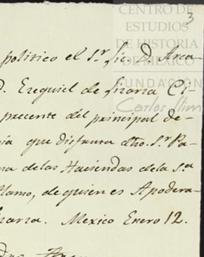 3
CENTRO DE
ESTUDIOS
DE HISTORIA
DE MÉXICO
FUNDACIÓN
Carlos Slim
politico el S.r Lic. D. Arca
D. Ezequiel de Lizarza Ci
presente del principal de
ia que disfruta dho. S.r Pa
na de las Haciendas de la S.ra
Alamo, de quien es Apodera
izarza. Mexico Enero 12.